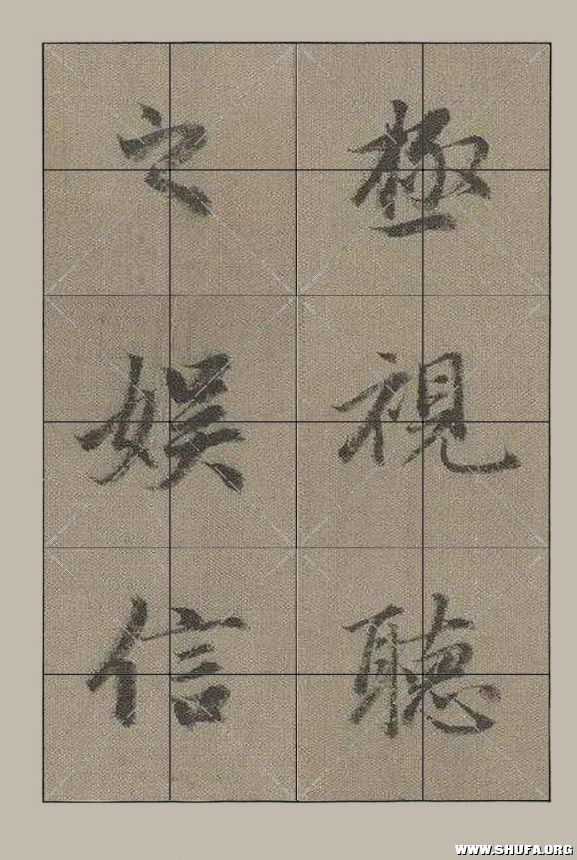 極視聽
之娛信
WWW.SHUFA.ORG